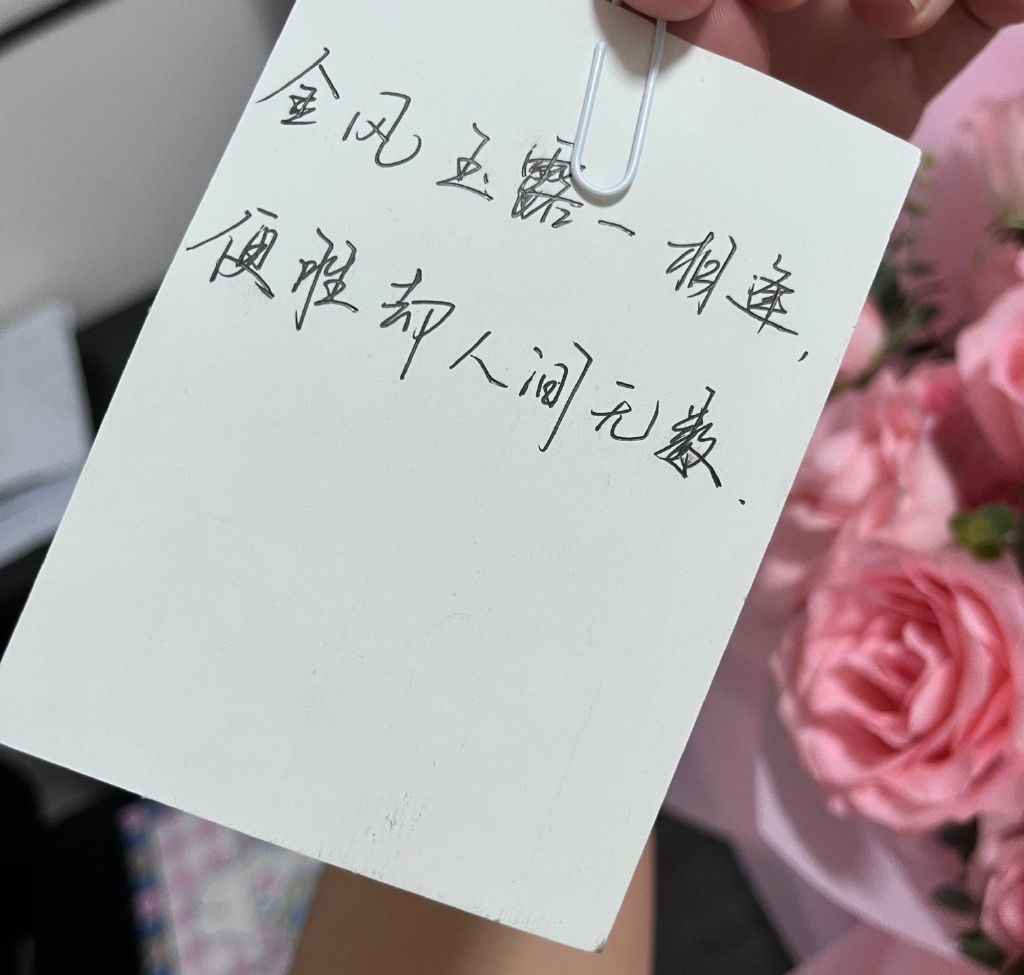 金风玉露一相逢,
便胜却人间无数.